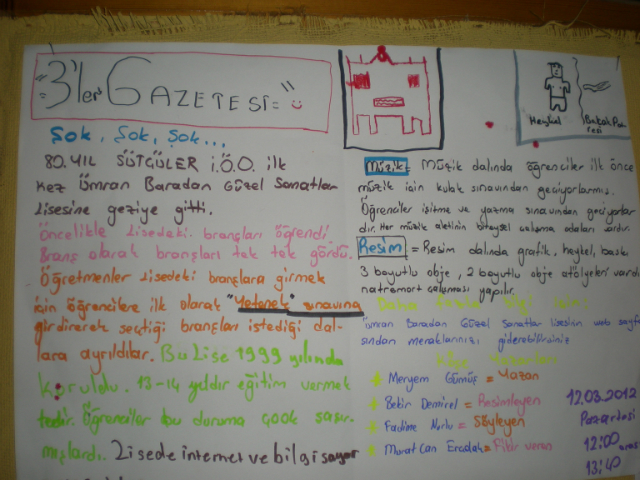 "3'ler GAZETESİ"
Şok, Şok, Şok...
80. YIL SÜTÇÜLER İ.Ö.O. ilk
kez Ümran Baradan Güzel Sanatlar
Lisesine geziye gitti.
Öncelikle Lisedeki branşları öğrendi
Branş olarak branşları tek tek gördü.
Öğretmenler Lisedeki branşlara girmek
için öğrencilere ilk olarak "Yetenek" sınavına
girdirerek seçtiği branşları istediği dal-
lara ayrıldılar. Bu Lise 1999 yılında
kuruldu. 13-14 yıldır eğitim vermek
tedir. Öğrenciler bu duruma çook şaşır-
mışlardı. Lisede internet ve bilgisayar
Heykel
Müzik = Müzik dalında öğrenciler ilk önce
müzik için kulak sınavından geçiyorlarmış.
Öğrenciler işitme ve yazma sınavından geçiyorlar
dır. Her müzik aletinin bireysel çalışma odaları vardır.
Resim = Resim dalında grafik, heykel, baskı
3 boyutlu obje, 2 boyutlu obje atölyeleri vardı
natremort çalışması yapılır.
Daha fazla bilgi için:
Ümran Baradan Güzel Sanatlar Lisesinin web sayfa
sından meraklarınızı giderebilirsiniz
Meryem Gümüş = Yazan
Bekir Demirel = Resimleyen
Fadime = Söyleyen
Murat Can = Fikir veren
12.03.2012
Pazartesi
12:00
13:40